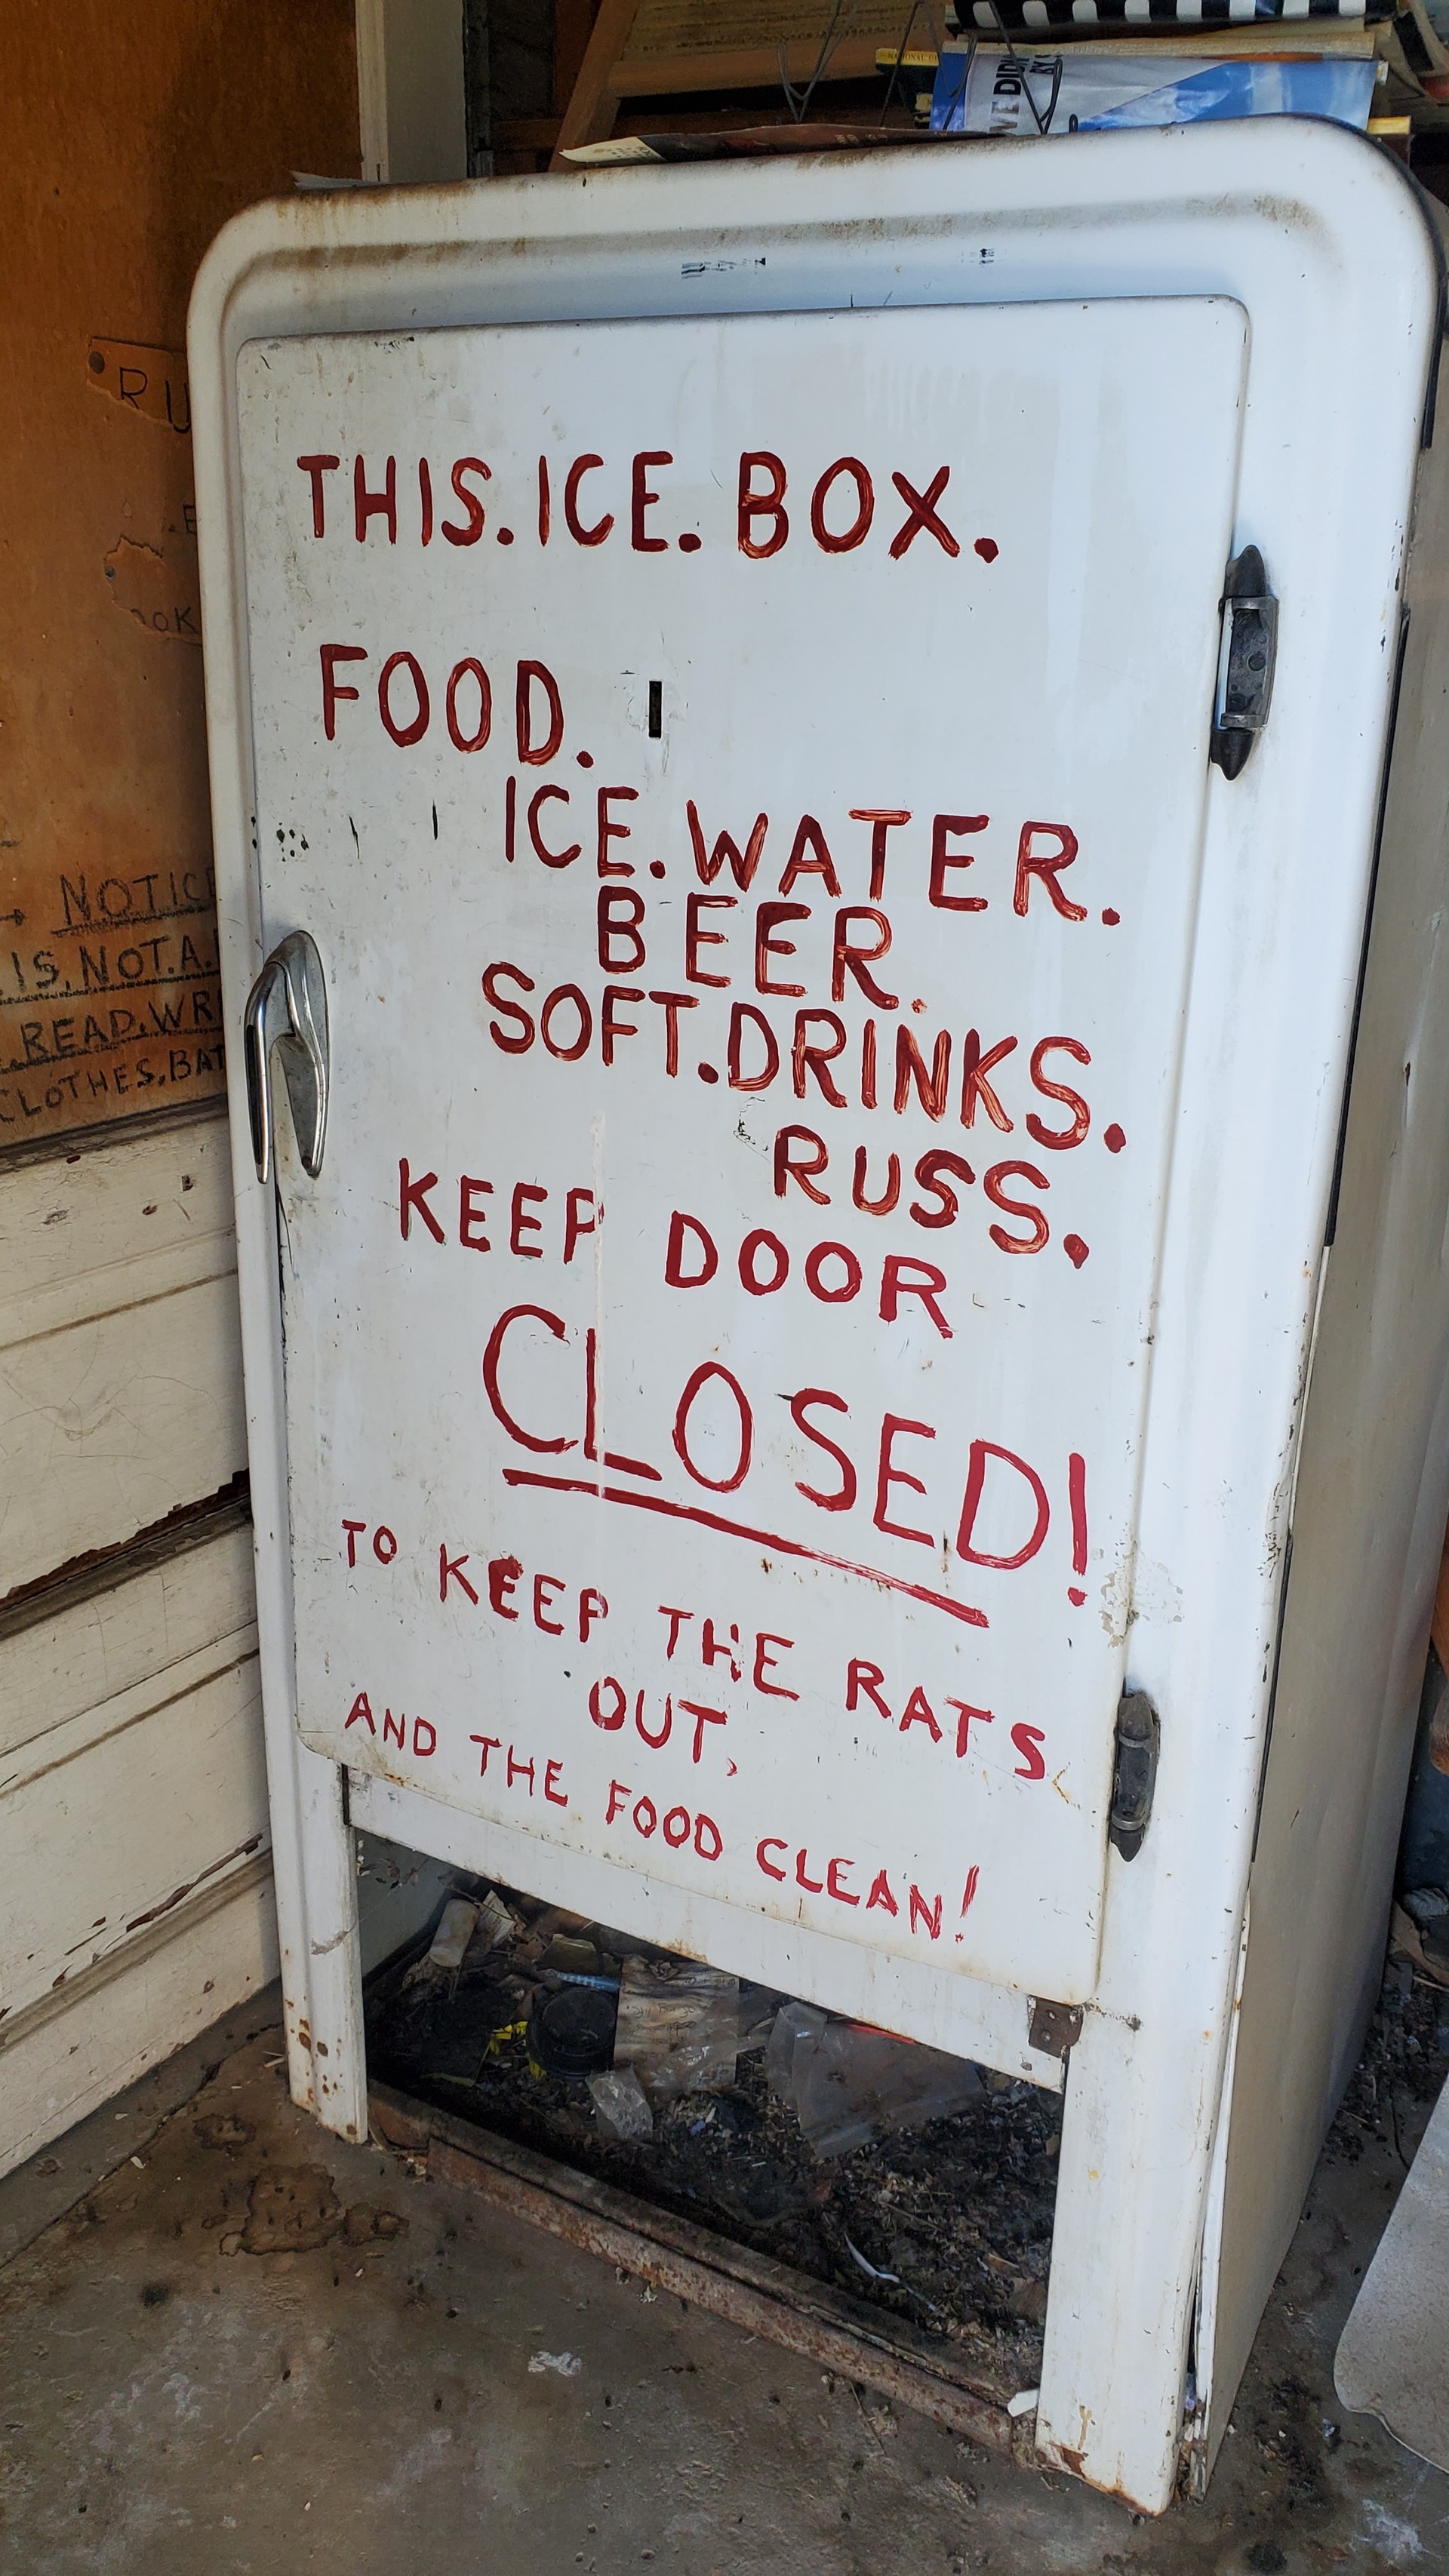 THIS.ICE.BOX.
FOOD.
ICE.WATER.
BEER.
SOFT.DRINKS.
RUSS.
KEEP DOOR
CLOSED!
TO KEEP THE RATS
OUT,
AND THE FOOD CLEAN!
NOTICE
IS.NOT.A.
READ.WRI
CLOTHES.BAT